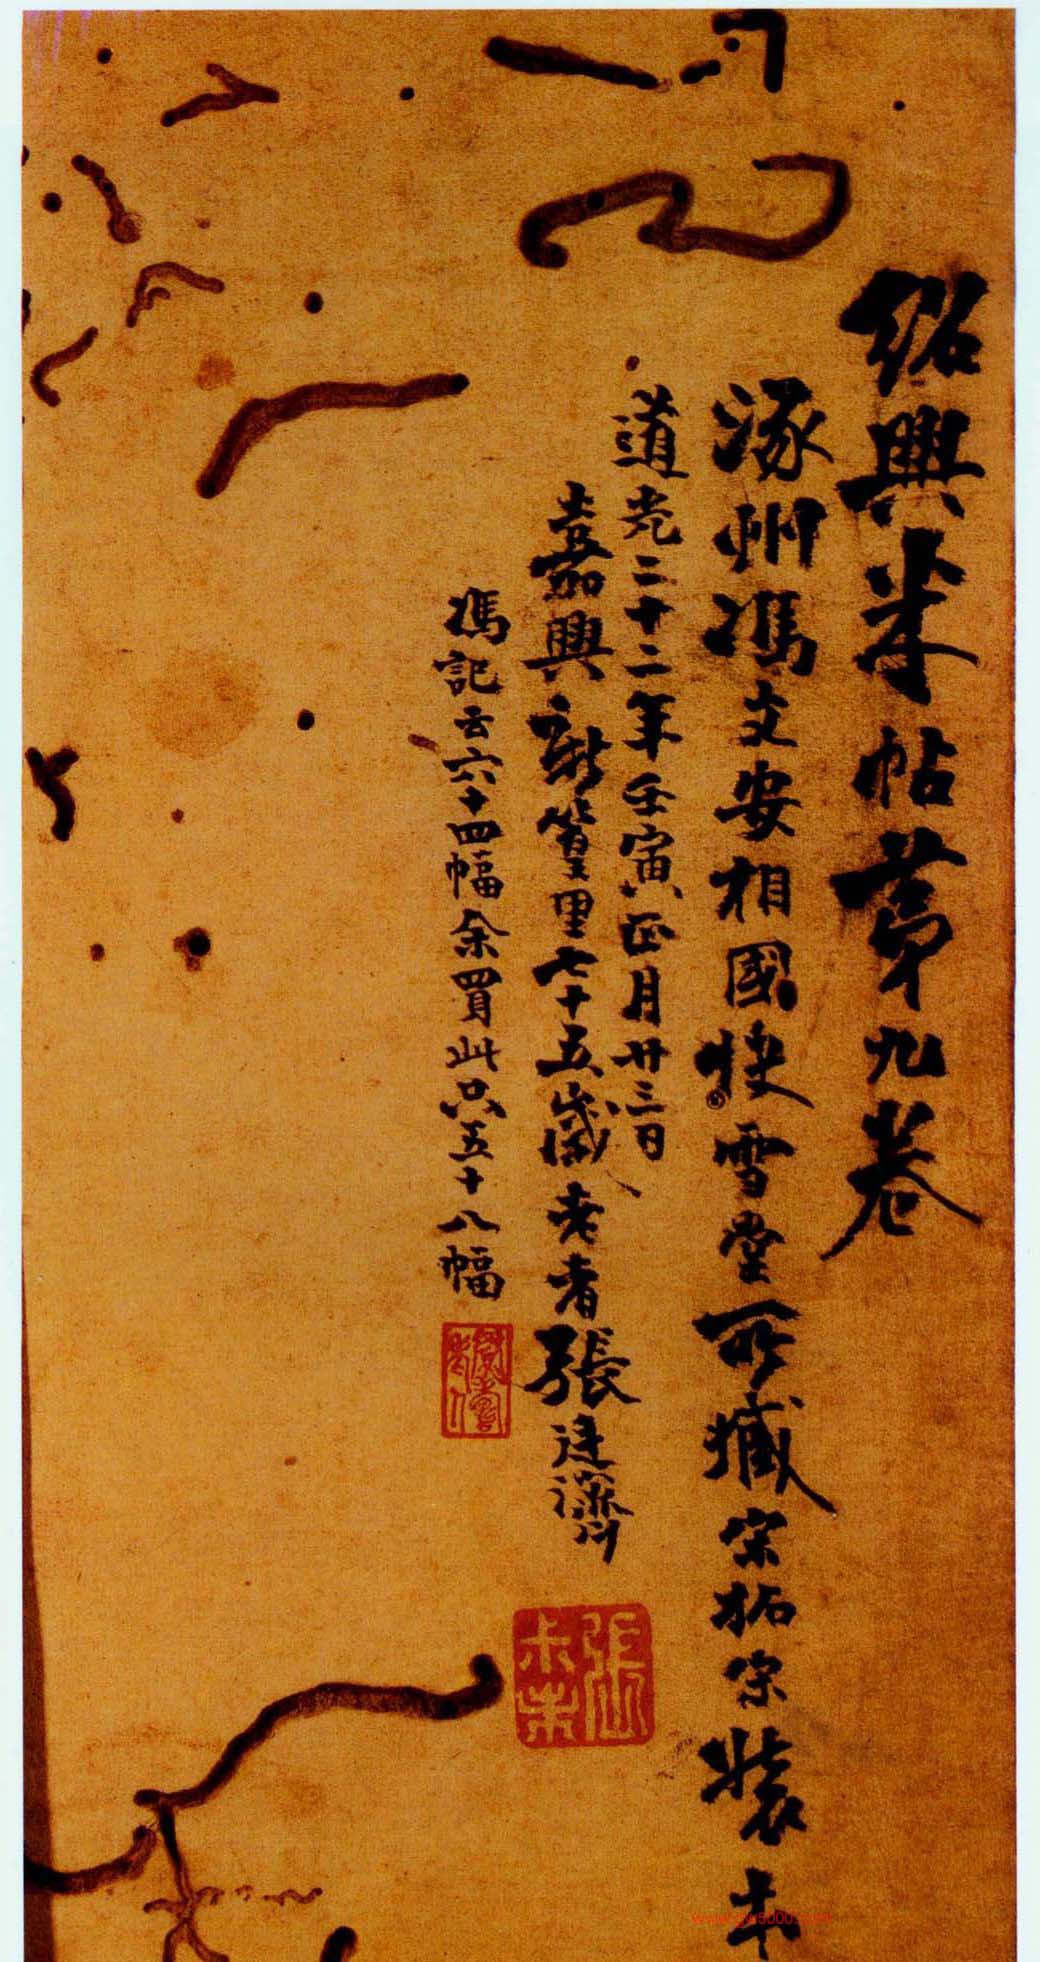 紹興米帖第九卷
涿州馮文安相國快雪堂所藏宋拓宋裝本
道光二十二年壬寅正月廿三日
嘉興新篁里七十五歲老者張廷濟
馮記云六十四幅余買此只五十八幅
張
未